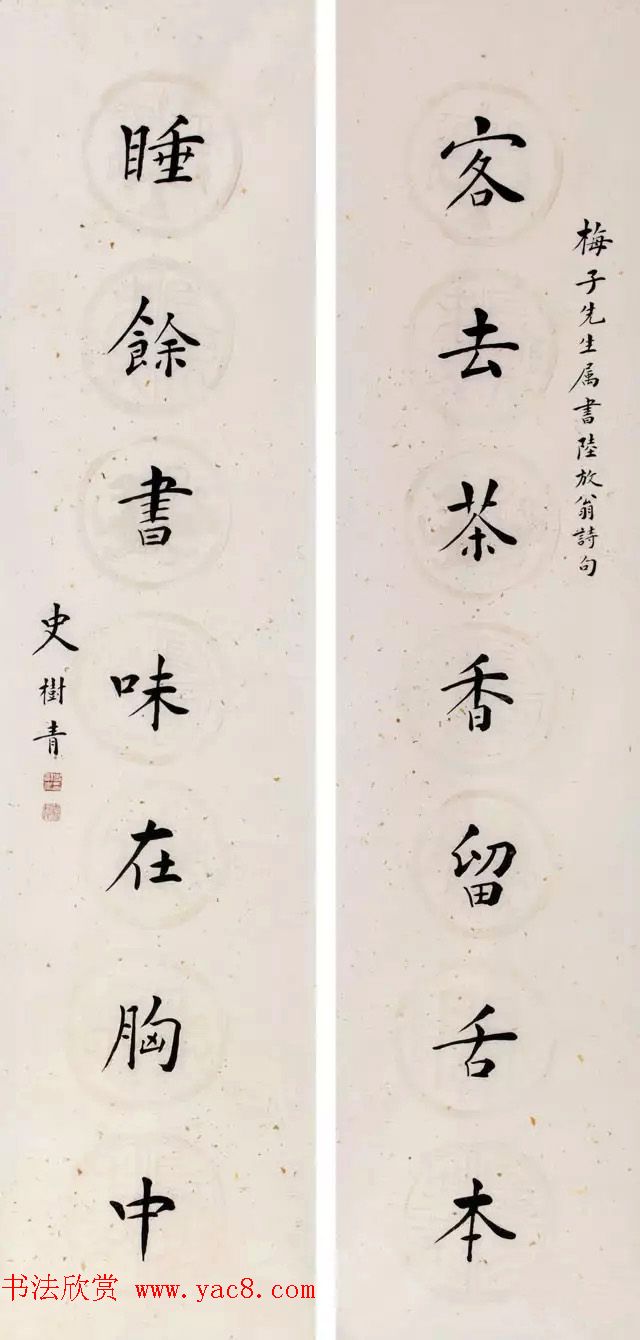 梅子先生属書陸放翁詩句
客去茶香留舌本
睡餘書味在胸中
史樹青
书法欣赏 www.yac8.com